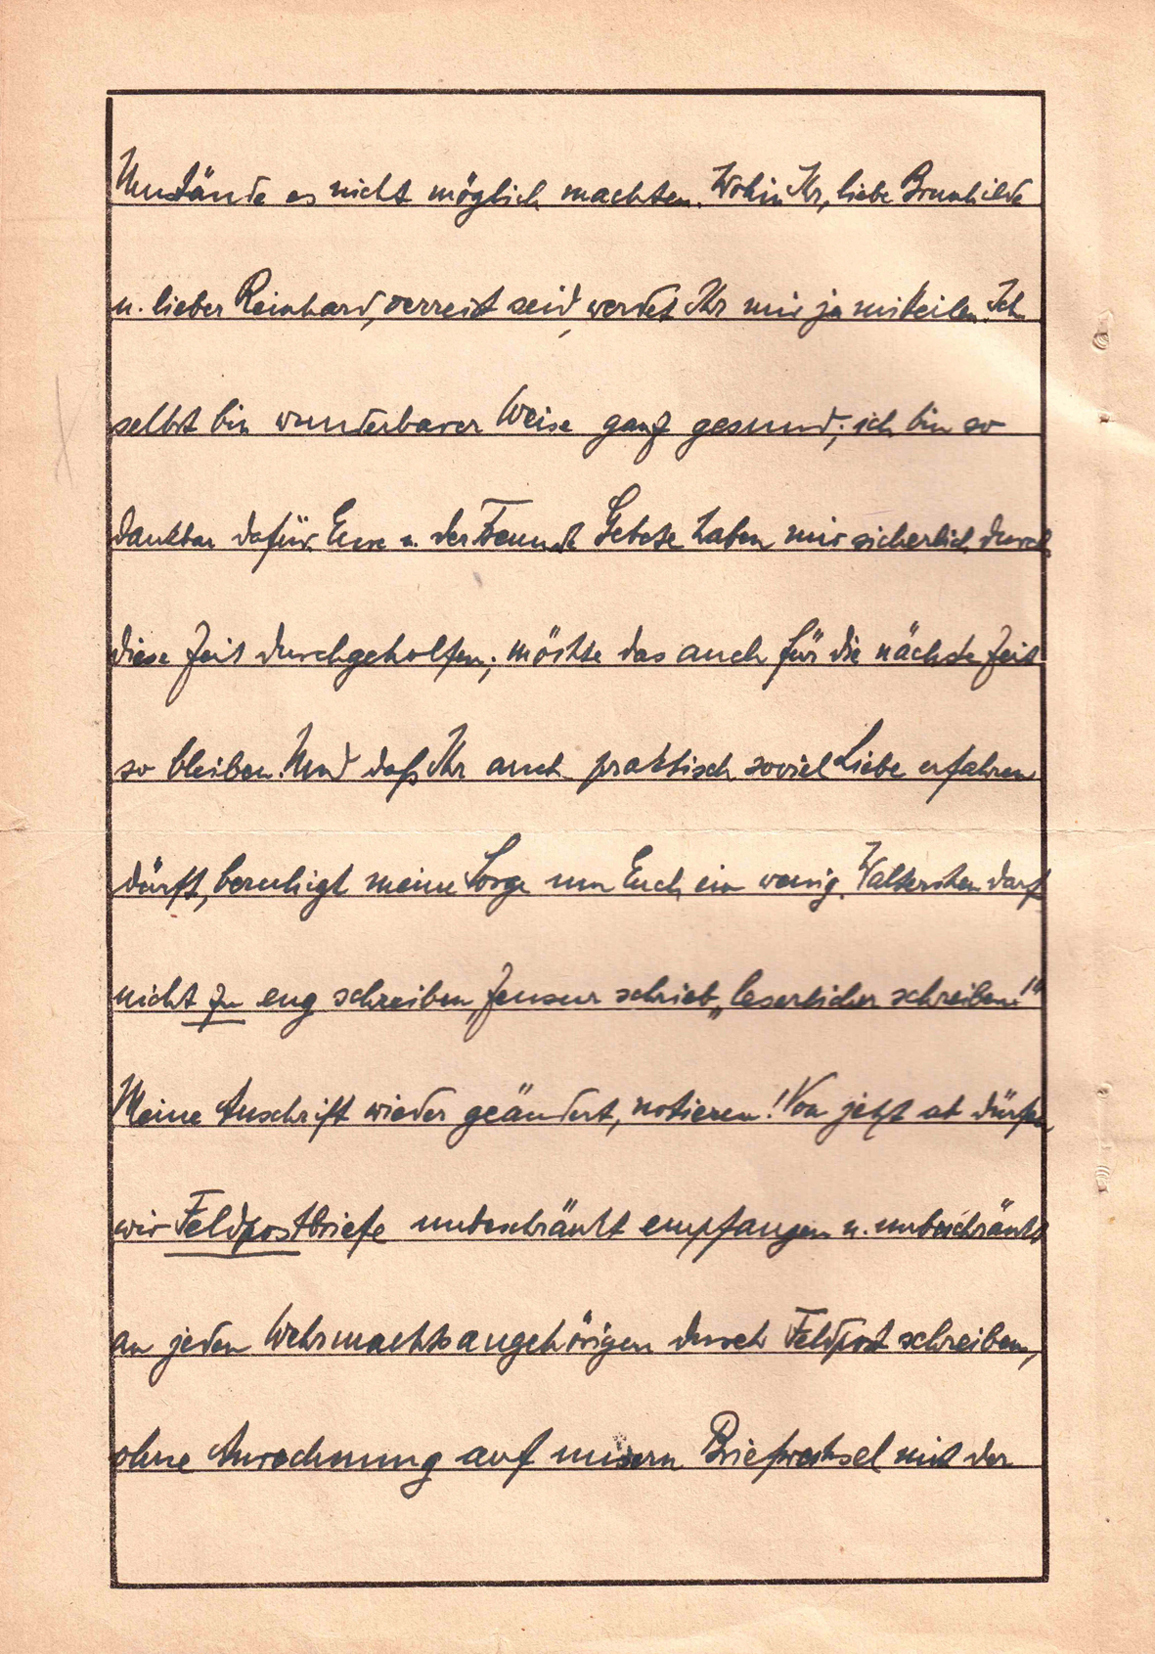 Umstände es nicht möglich machten. Wohin Ihr, liebe Brunhilde
u. lieber Reinhard, verreist seid, werdet Ihr mir ja mitteilen. Ich
selbst bin wunderbarer Weise ganz gesund; ich bin so
dankbar dafür. Eure u. der Freunde Gebete haben mir sicherlich durch
diese Zeit durchgeholfen; möchte das auch für die nächste Zeit
so bleiben. Und daß Ihr auch praktisch soviel Liebe erfahren
dürft, beruhigt meine Sorge um Euch ein wenig. Walterchen darf
nicht zu eng schreiben, Zensur schrieb „leserlicher schreiben!"
Meine Anschrift wieder geändert, notieren! Von jetzt ab dürfen
wir Feldpostbriefe unbeschränkt empfangen u. unbeschränkt
an jeden Wehrmachtsangehörigen durch Feldpost schreiben,
ohne Anrechnung auf unsern Briefwechsel mit der